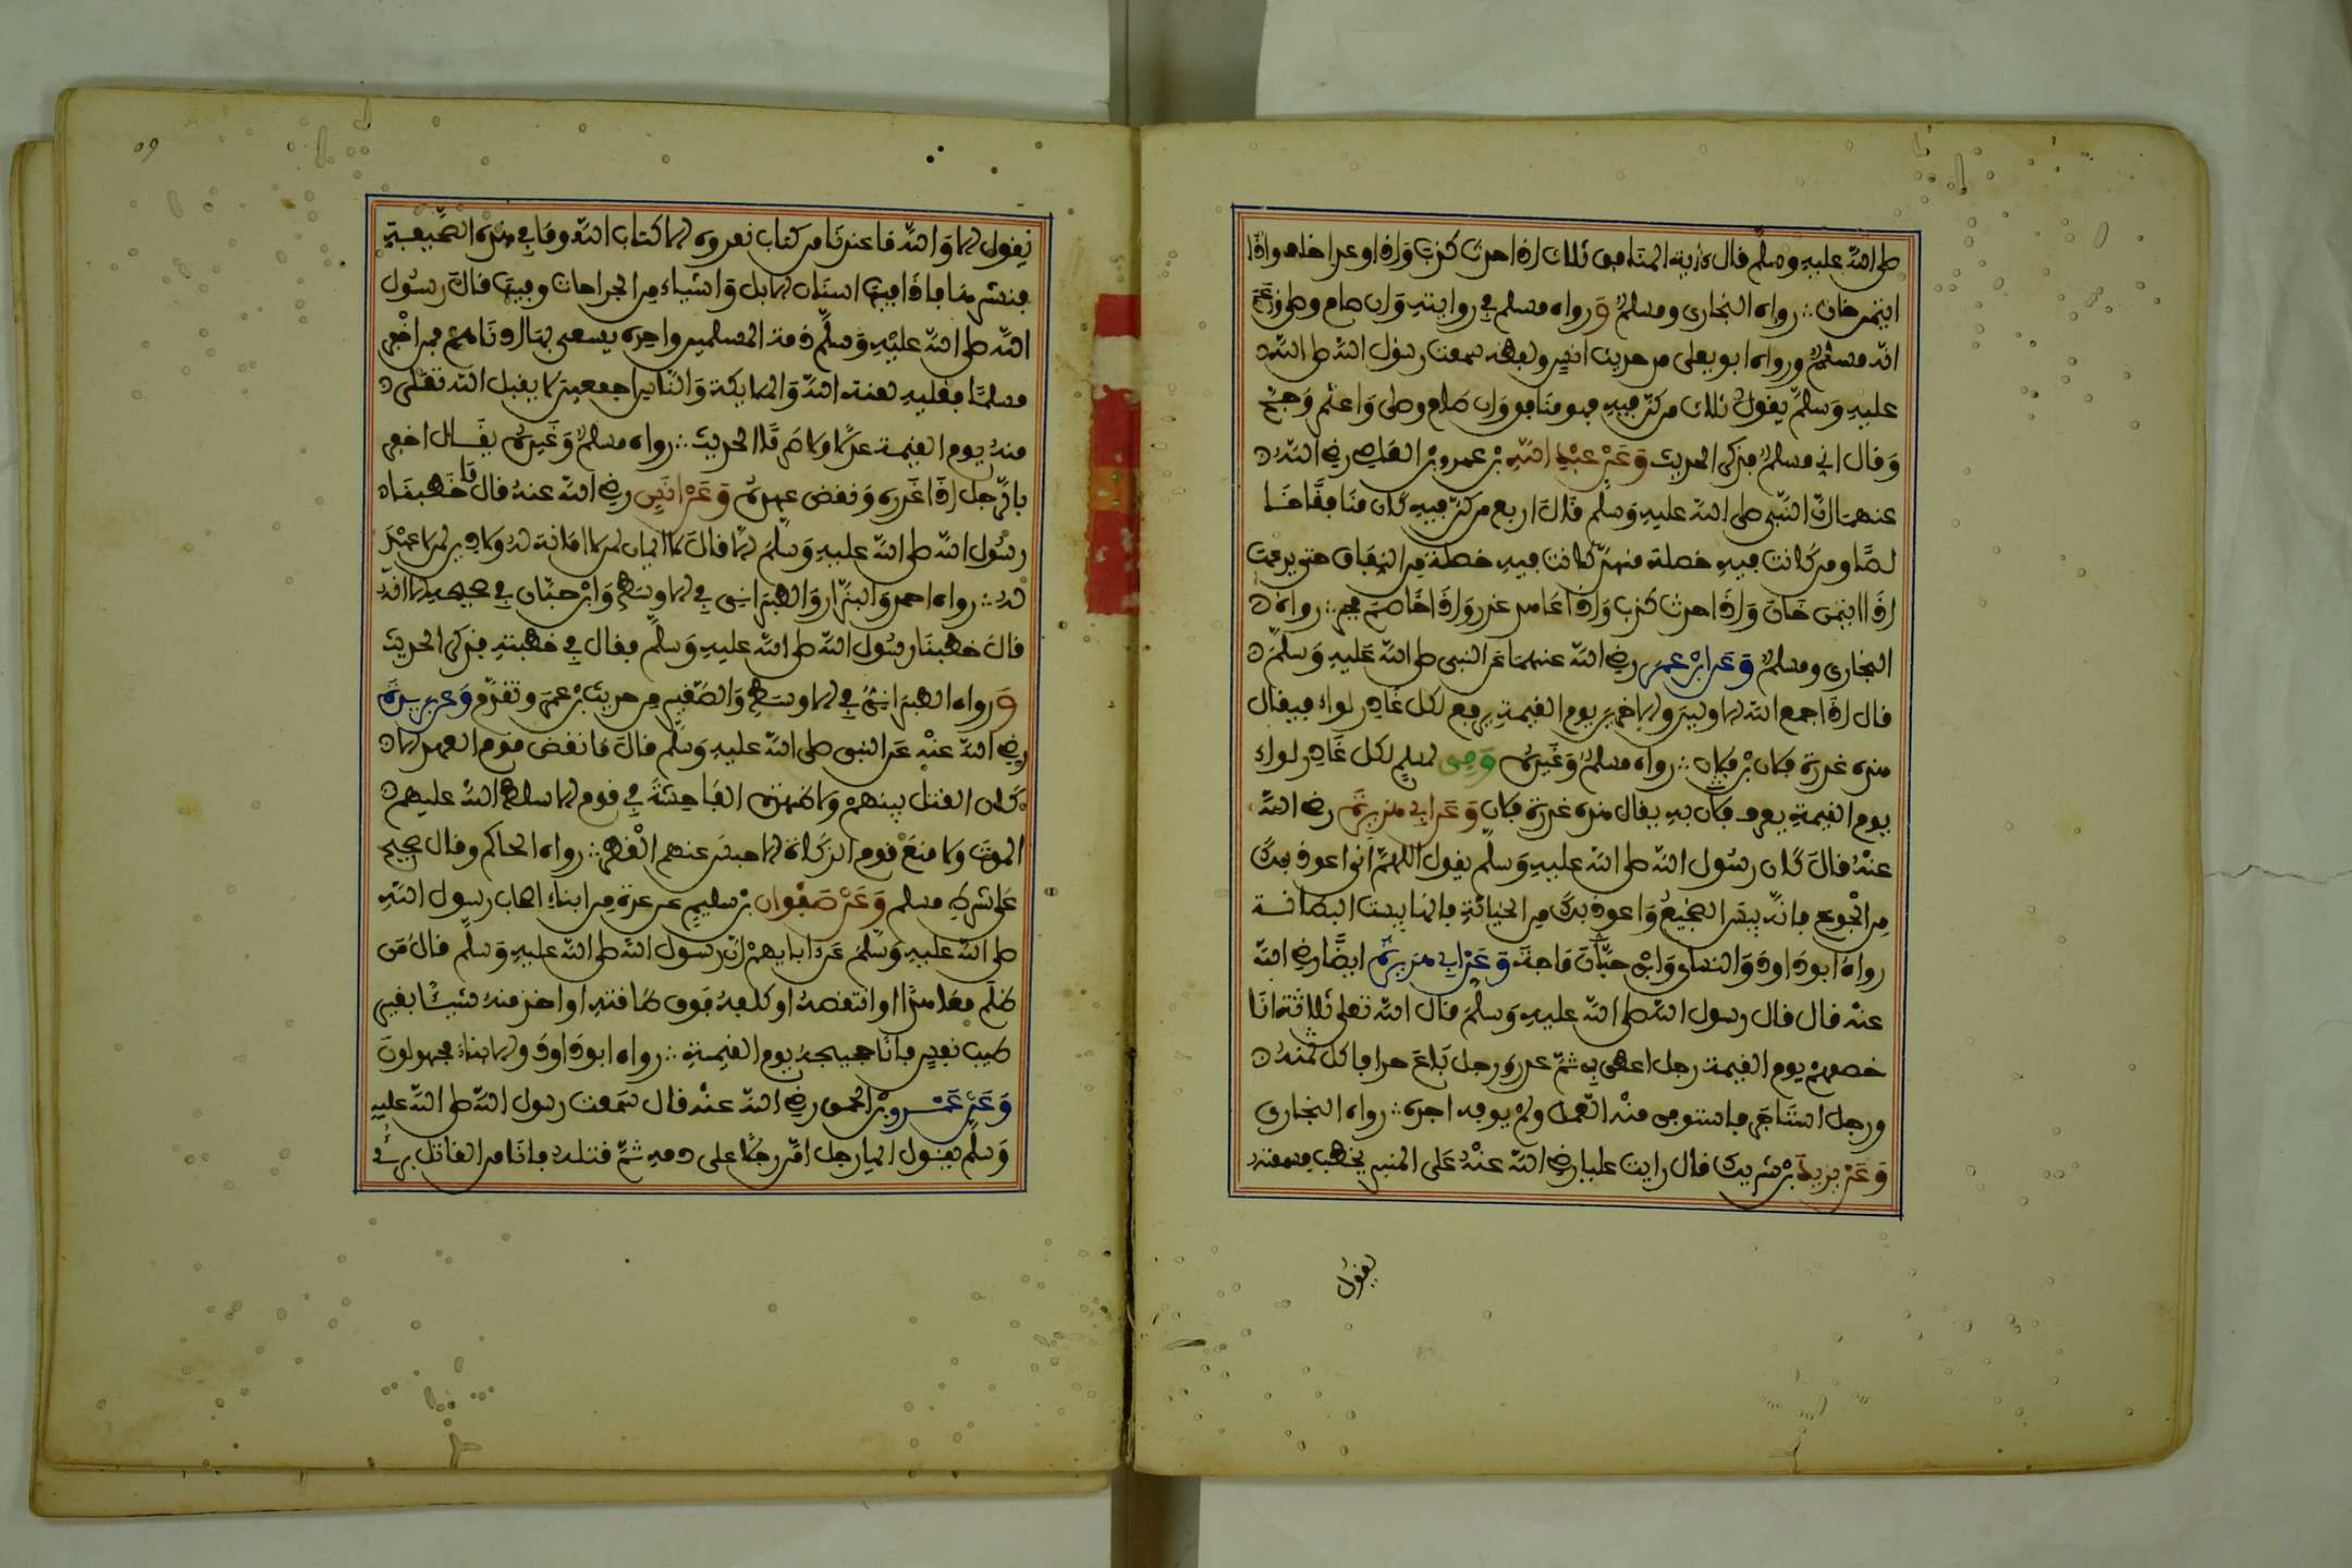 صلى الله عليه وسلم قال ءاية المنافق ثلاث اذا حدث كذب واذا وعد اخلف واذا
ايتمن خان رواه البخاري ومسلم ورواه مسلم في روايته وان صام وصلى وزعم
انه مسلم ورواه ابو يعلى من حديث انس ولفظه سمعت رسول الله صلى الله
عليه وسلم يقول ثلاث من كن فيه فهو منافق وان صام وصلى واعتمر وحج
وقال اني مسلم فذكر الحديث وعن عبد الله بن عمرو بن العاص رضي الله
عنهما ان النبي صلى الله عليه وسلم قال اربع من كن فيه كان منافقا خا
لصا ومن كانت فيه خصلة منهن كانت فيه خصلة من النفاق حتى يدعها
اذا ايتمن خان واذا حدث كذب واذا عاهد غدر واذا خاصم فجر رواه
البخاري ومسلم وعن ابن عمر رضي الله عنهما عن النبي صلى الله عليه وسلم
قال اذا جمع الله الاولين والاخرين يوم القيمة يرفع لكل غادر لواء فيقال
هذه غدرة فلان بن فلان رواه مسلم وغيره وفي لمسلم لكل غادر لواء
يوم القيمة يعرف فلان به يقال هذه غدرة فلان وعن ابي هريرة رضي الله
عنه قال كان رسول الله صلى الله عليه وسلم يقول اللهم اني اعوذ بك
من الجوع فانه بيس الضجيع واعوذ بك من الخيانة فانها بيست البطانة
رواه ابو داود والنساي وابن حبان ماجة وعن ابي هريرة ايضا رضي الله
عنه قال قال رسول الله صلى الله عليه وسلم قال الله تعلى ثلاثة انا
خصمهم يوم القيمة رجل اعطى بي ثم غدر ورجل باع حرا فاكل ثمنه
ورجل استاجر فاستوفى منه العمل ولم يوفه اجره رواه البخاري
وعن يزيد بن شريك قال رايت عليا رضي الله عنه على المنبر يخطب فسمعته
يقول
يقول لا والله ما عندنا من كتاب نقروه الا كتاب الله وما في هذه الصحيفة
فنشرها فاذا فيها اسنان الابل واشياء من الجراحات وفيها قال رسول
الله صلى الله عليه وسلم ذمة المسلمين واحدة يسعى بها ادناهم فمن اخفر
مسلما فعليه لعنة الله والملايكة والناس اجمعين لا يقبل الله تعلى
منه يوم القيمة عدلا ولا صرفا الحديث رواه مسلم وغيره يقال اخفر
بالرجل اذا غدره ونقض عهده وعن انس رضي الله عنه قال ما خطبنا
رسول الله صلى الله عليه وسلم الا قال لا ايمان لمن لا امانة له ولا دين لمن لا عهد
له رواه احمد والبزار والطبراني في الاوسط وابن حبان في صحيحه الا انه
قال خطبنا رسول الله صلى الله عليه وسلم فقال في خطبته فذكر الحديث
ورواه الطبراني في الاوسط والصغير من حديث بن عمر وتقدم وعن بريدة
رضي الله عنه عن النبي صلى الله عليه وسلم قال ما نقض قوم العهد الا
كان القتل بينهم ولا ظهرت الفاحشة في قوم الا سلط الله عليهم
الموت ولا منع قوم الزكاة الا حبس عنهم القطر رواه الحاكم وقال صحيح
على شرط مسلم وعن صفوان بن سليم عن عدة من ابناء اصحاب رسول الله
صلى الله عليه وسلم عن ابايهم ان رسول الله صلى الله عليه وسلم قال من
ظلم معاهدا او انتقصه او كلفه فوق طاقته او اخذ منه شيئا بغير
طيب نفس فانا حجيجه يوم القيمة رواه ابو داود والابناء مجهولون
وعن عمرو بن الحمق رضي الله عنه قال سمعت رسول الله صلى الله عليه
وسلم يقول ايما رجل امن رجلا على دمه ثم قتله فانا من القاتل بري